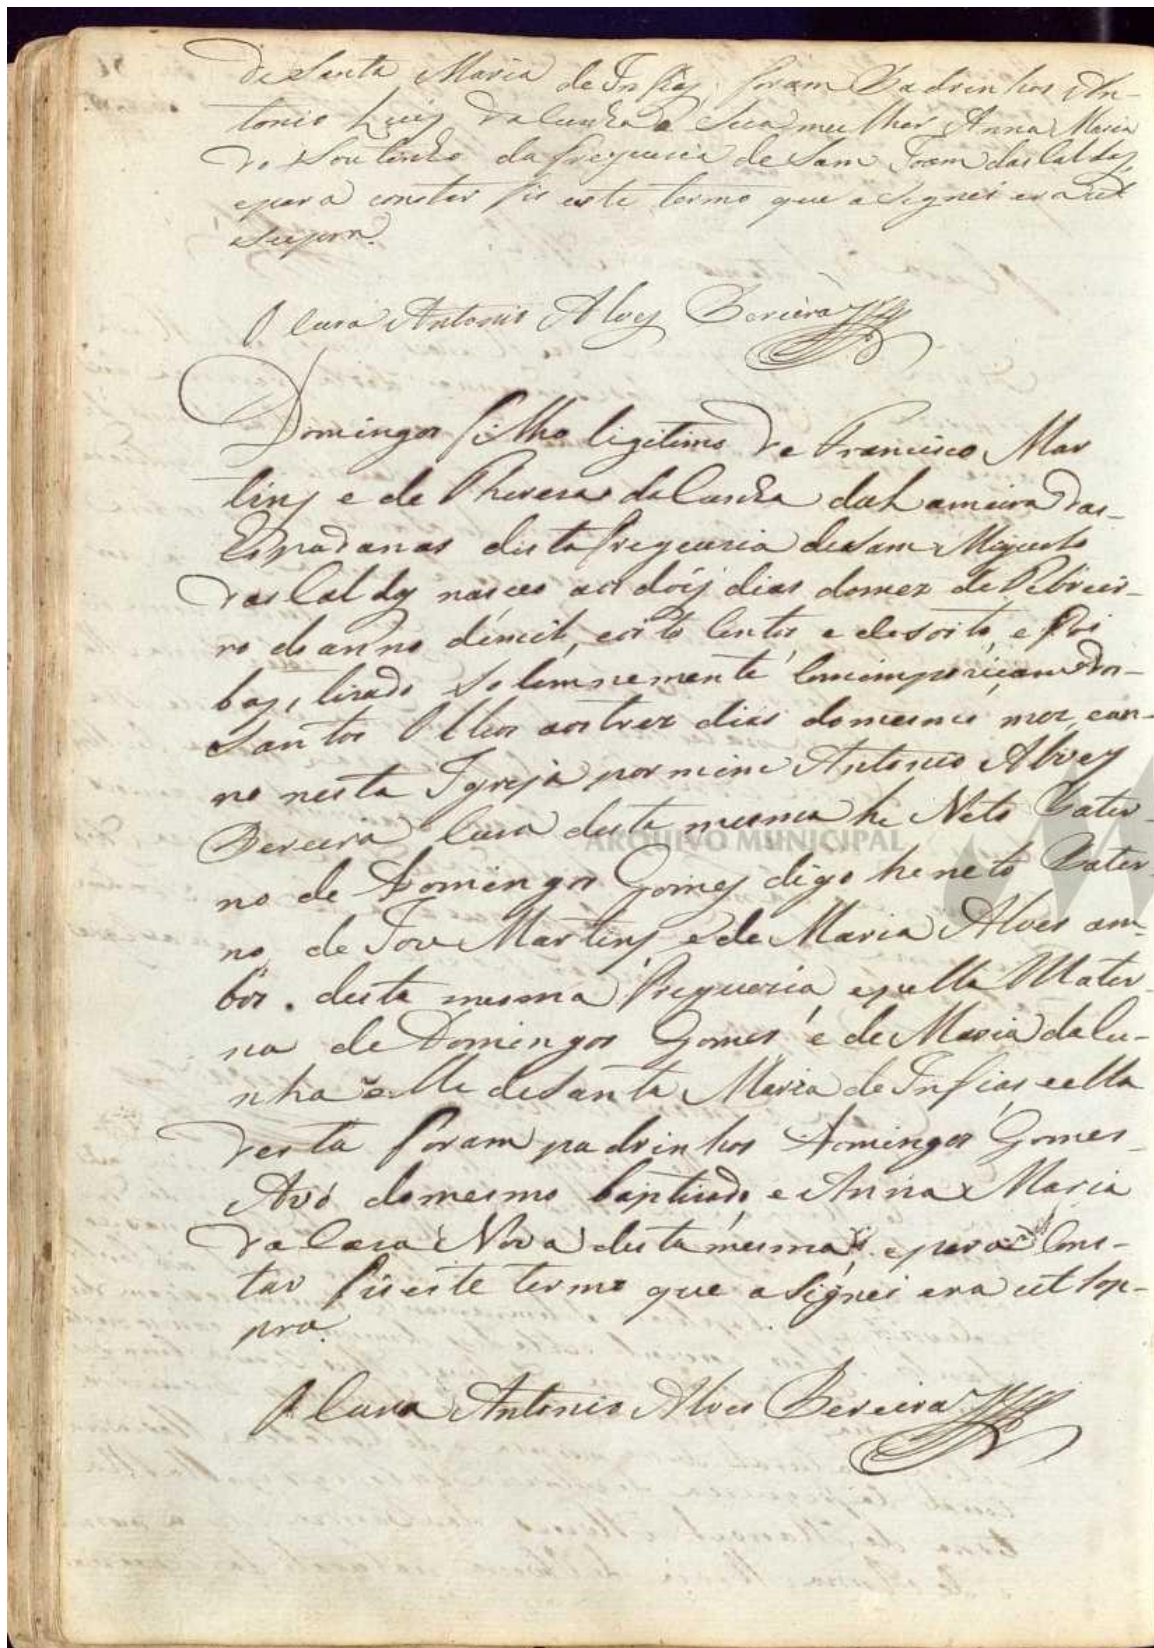 de Santa Maria de Infias, foram Padrinhos An-
tonio Luis da Cunha e Sua mulher Anna Maria
do Soutinho da freguesia de Sam Joam das Caldas,
epara constar fis este termo que asignei era ut
Supra.
O Cura Antonio Alves Pereira
Domingos filho ligitimo de Francisco Mar
tins e de Theresa da Cunha da Lameira das
Espadanas desta freguesia de Sam Miguel
das Caldas nasceo aos dois dias domez de Febrei-
ro do anno de mil, oito Centos e desoito, e foi
baptisado Solemnemente Com imposiçam dos
Santos Olleos aos trez dias domesmo mez, ean-
no nesta Igreja por mim Antonio Alves
Pereira Cura desta mesma he Neto Pater-
no de Domingos Gomes digo he neto Pater-
no, de Jose Martins e de Maria Alves am-
bos. desta mesma freguesia, epella Mater-
na de Domingos Gomes e de Maria da Cu-
nha elle de Santa Maria de Infias, eella
desta foram padrinhos Domingos Gomes
Avó domesmo baptisado, e Anna Maria
da Casa Nova desta mesma, epara Cons-
tar fis este termo que asignei era ut Sop-
pra.
O Cura Antonio Alves Pereira
ARQUIVO MUNICIPAL